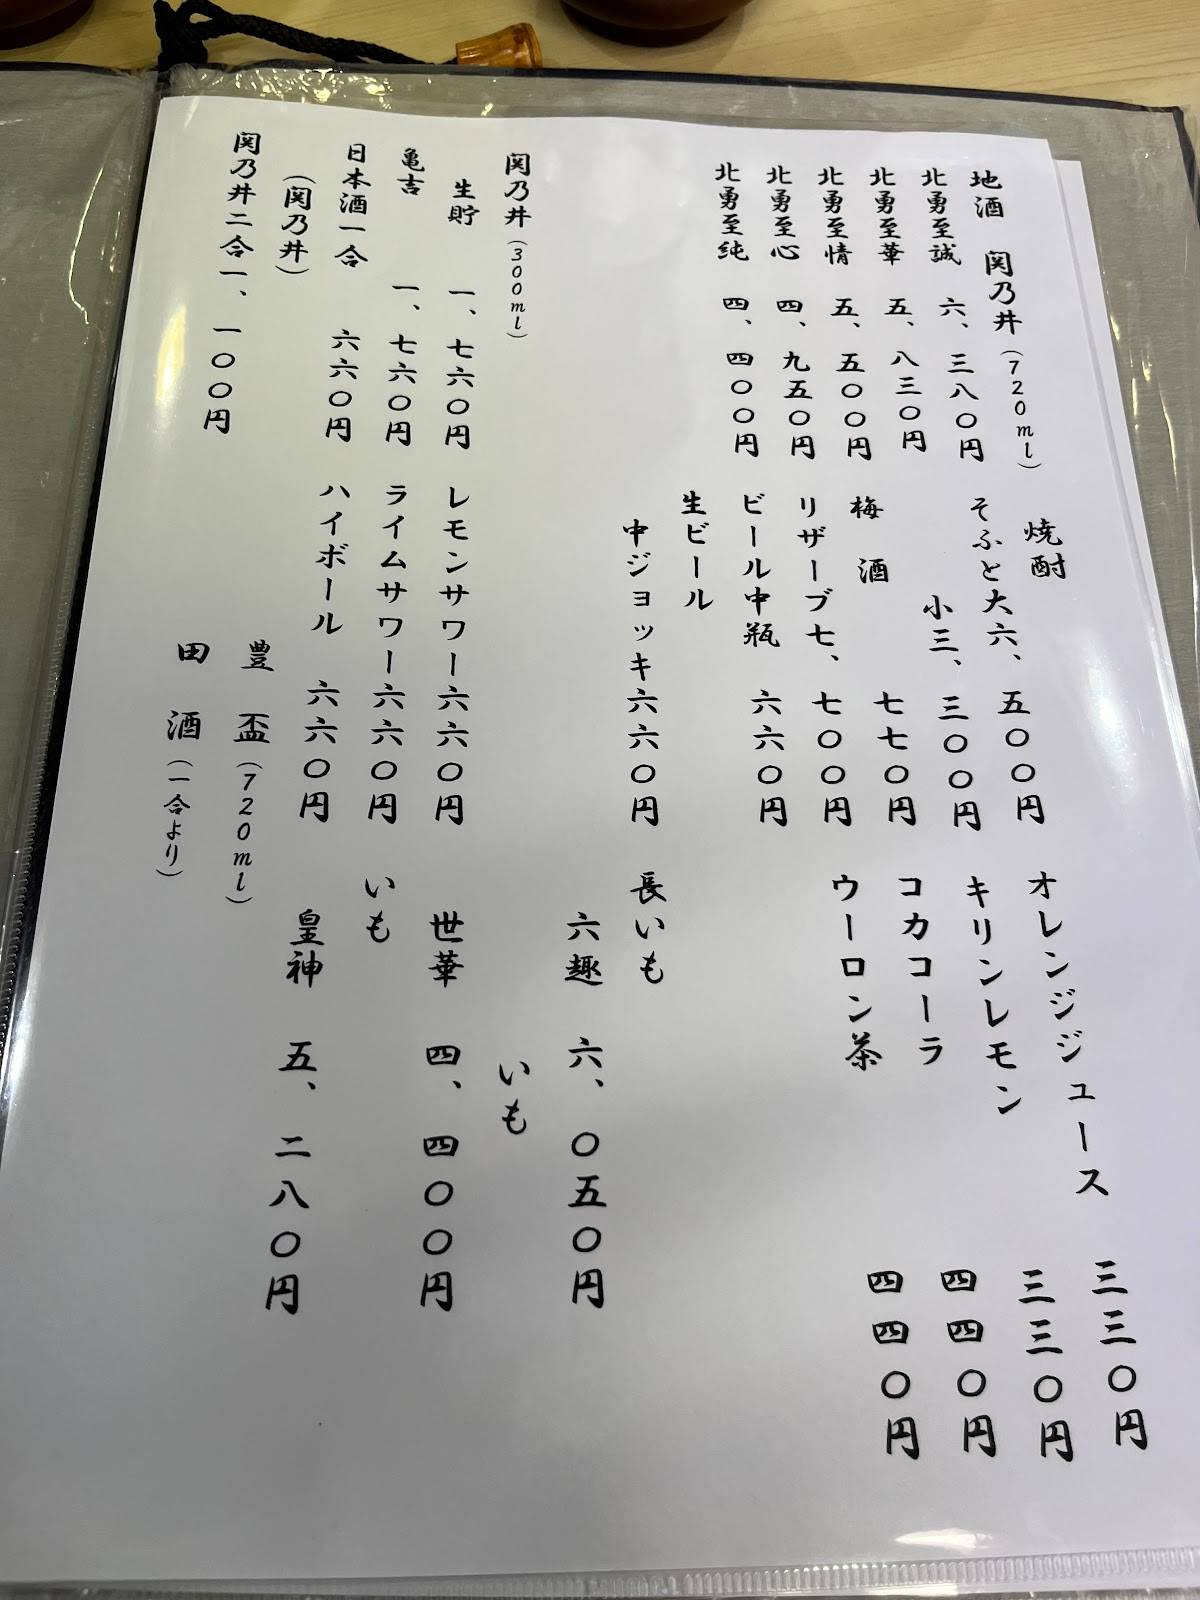 地酒 関乃井(720ml)
北勇至誠 六、三八〇円
北勇至華 五、八三〇円
北勇至情 五、五〇〇円
北勇至心 四、九五〇円
北勇至純 四、四〇〇円
関乃井(300ml)
生貯 一、七六〇円
亀吉 一、七六〇円
日本酒一合 六六〇円
(関乃井)
関乃井二合一、一〇〇円
焼酎
そふと大六、五〇〇円
小三、三〇〇円
梅酒 七七〇円
リザーブ七、七〇〇円
ビール中瓶 六六〇円
生ビール
中ジョッキ六六〇円
レモンサワー六六〇円
ライムサワー六六〇円
ハイボール 六六〇円
豊盃(720ml)
田酒(一合より)
オレンジジュース 三三〇円
キリンレモン 三三〇円
コカコーラ 四四〇円
ウーロン茶 四四〇円
長いも
六趣 六、〇五〇円
いも
世華 四、四〇〇円
いも
皇神 五、二八〇円